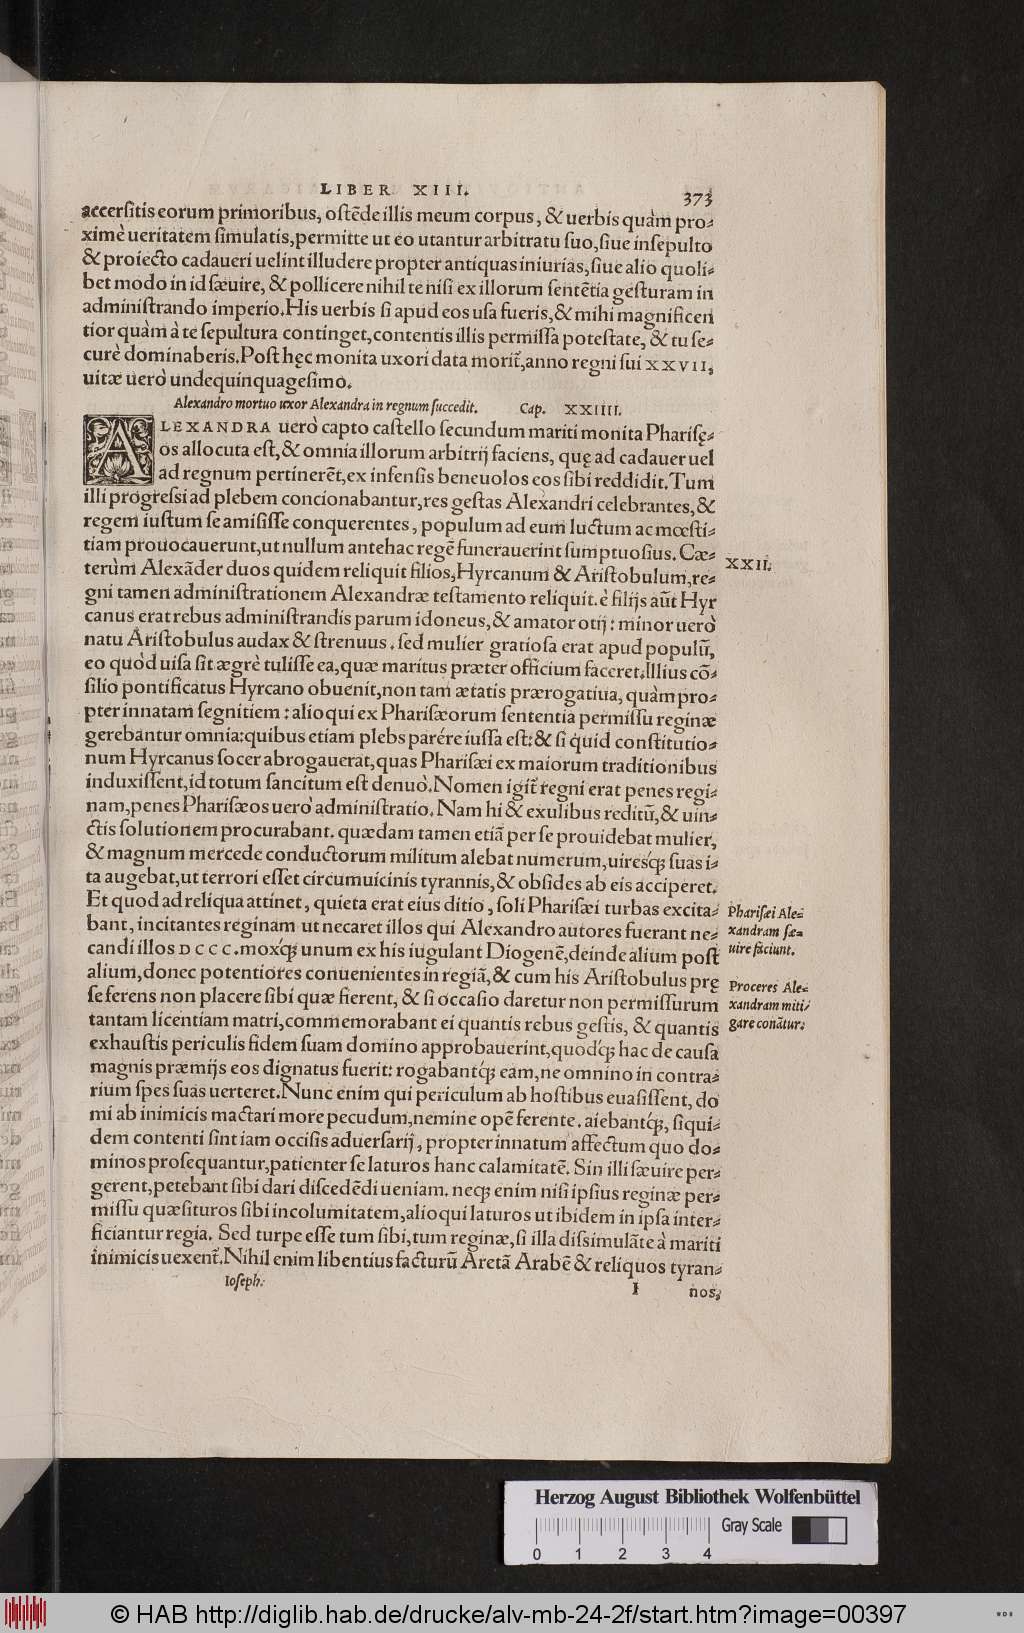 LIBER XIII.
373
accersitis eorum primoribus, ostẽde illis meum corpus, & uerbis quàm pro-
ximè ueritatem simulatis, permitte ut eo utantur arbitratu suo, siue insepulto
& proiecto cadaueri uelint illudere propter antiquas iniurias, siue alio quoli-
bet modo in id sæuire, & pollicere nihil te nisi ex illorum sentẽtia gesturam in
administrando imperio. His uerbis si apud eos usa fueris, & mihi magnificen
tior quàm à te sepultura continget, contentis illis permissa potestate, & tu se-
curè dominaberis. Post hęc monita uxori data morit̃, anno regni sui XXVII,
uitæ uerò undequinquagesimo.
Alexandro mortuo uxor Alexandra in regnum succedit. Cap. XXIIII.
ALEXANDRA uerò capto castello secundum mariti monita Pharisę-
os allocuta est, & omnia illorum arbitrij faciens, quę ad cadauer uel
ad regnum pertinerẽt, ex infensis beneuolos eos sibi reddidit. Tum
illi progressi ad plebem concionabantur, res gestas Alexandri celebrantes, &
regem iustum se amisisse conquerentes, populum ad eum luctum ac mœsti-
tiam prouocauerunt, ut nullum antehac regẽ funerauerint sumptuosius. Cæ-
terùm Alexãder duos quidem reliquit filios, Hyrcanum & Aristobulum, re-
XXII.
gni tamen administrationem Alexandræ testamento reliquit. è filijs aũt Hyr
canus erat rebus administrandis parum idoneus, & amator otij: minor uerò
natu Aristobulus audax & strenuus. sed mulier gratiosa erat apud populũ,
eo quòd uisa sit ægrè tulisse ea, quæ maritus præter officium faceret. Illius cõ-
silio pontificatus Hyrcano obuenit, non tam ætatis prærogatiua, quàm pro-
pter innatam segnitiem: alioqui ex Pharisæorum sententia permissu reginæ
gerebantur omnia: quibus etiam plebs parére iussa est: & si quid constitutio-
num Hyrcanus socer abrogauerat, quas Pharisæi ex maiorum traditionibus
induxissent, id totum sancitum est denuò. Nomen igit̃ regni erat penes regi-
nam, penes Pharisæos uerò administratio. Nam hi & exulibus reditũ, & uin-
ctis solutionem procurabant. quædam tamen etiã per se prouidebat mulier,
& magnum mercede conductorum militum alebat numerum, uiresq́; suas i-
ta augebat, ut terrori esset circumuicinis tyrannis, & obsides ab eis acciperet.
Et quod ad reliqua attinet, quieta erat eius ditio, soli Pharisæi turbas excita-
bant, incitantes reginam ut necaret illos qui Alexandro autores fuerant ne-
candi illos DCCC. moxq́; unum ex his iugulant Diogenẽ, deinde alium post
Pharisæi Ale-
xandram sæ-
uire faciunt.
alium, donec potentiores conuenientes in regiã, & cum his Aristobulus prę
se ferens non placere sibi quæ fierent, & si occasio daretur non permissurum
tantam licentiam matri, commemorabant ei quantis rebus gestis, & quantis
Proceres Ale-
xandram miti-
gare conãtur.
exhaustis periculis fidem suam domino approbauerint, quodq́; hac de causa
magnis præmijs eos dignatus fuerit: rogabantq́; eam, ne omnino in contra-
rium spes suas uerteret. Nunc enim qui periculum ab hostibus euasissent, do
mi ab inimicis mactari more pecudum, nemine opẽ ferente. aiebantq́;, siqui-
dem contenti sint iam occisis aduersarij, propter innatum affectum quo do-
minos prosequantur, patienter se laturos hanc calamitatẽ. Sin illi sæuire per-
gerent, petebant sibi dari discedẽdi ueniam. neq; enim nisi ipsius reginæ per-
missu quæsituros sibi incolumitatem, alioqui laturos ut ibidem in ipsa inter-
ficiantur regia. Sed turpe esse tum sibi, tum reginæ, si illa dissimulãte à mariti
inimicis uexent̃. Nihil enim libentius facturũ Aretã Arabẽ & reliquos tyran-
Ioseph.
I
nos,
Herzog August Bibliothek Wolfenbüttel
Gray Scale
0 1 2 3 4
© HAB http://diglib.hab.de/drucke/alv-mb-24-2f/start.htm?image=00397